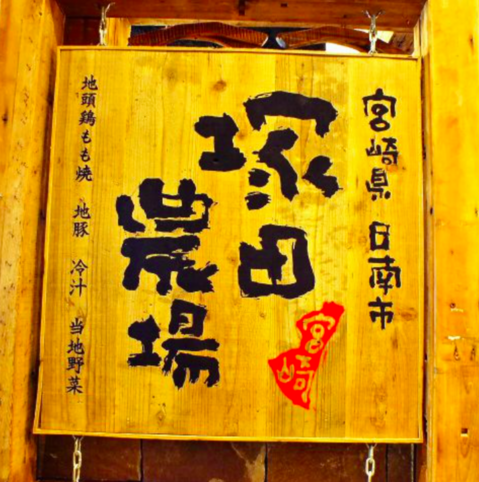 宮崎県 日南市
塚田
農場
宮崎
地頭鶏もも焼 地豚 冷汁 当地野菜